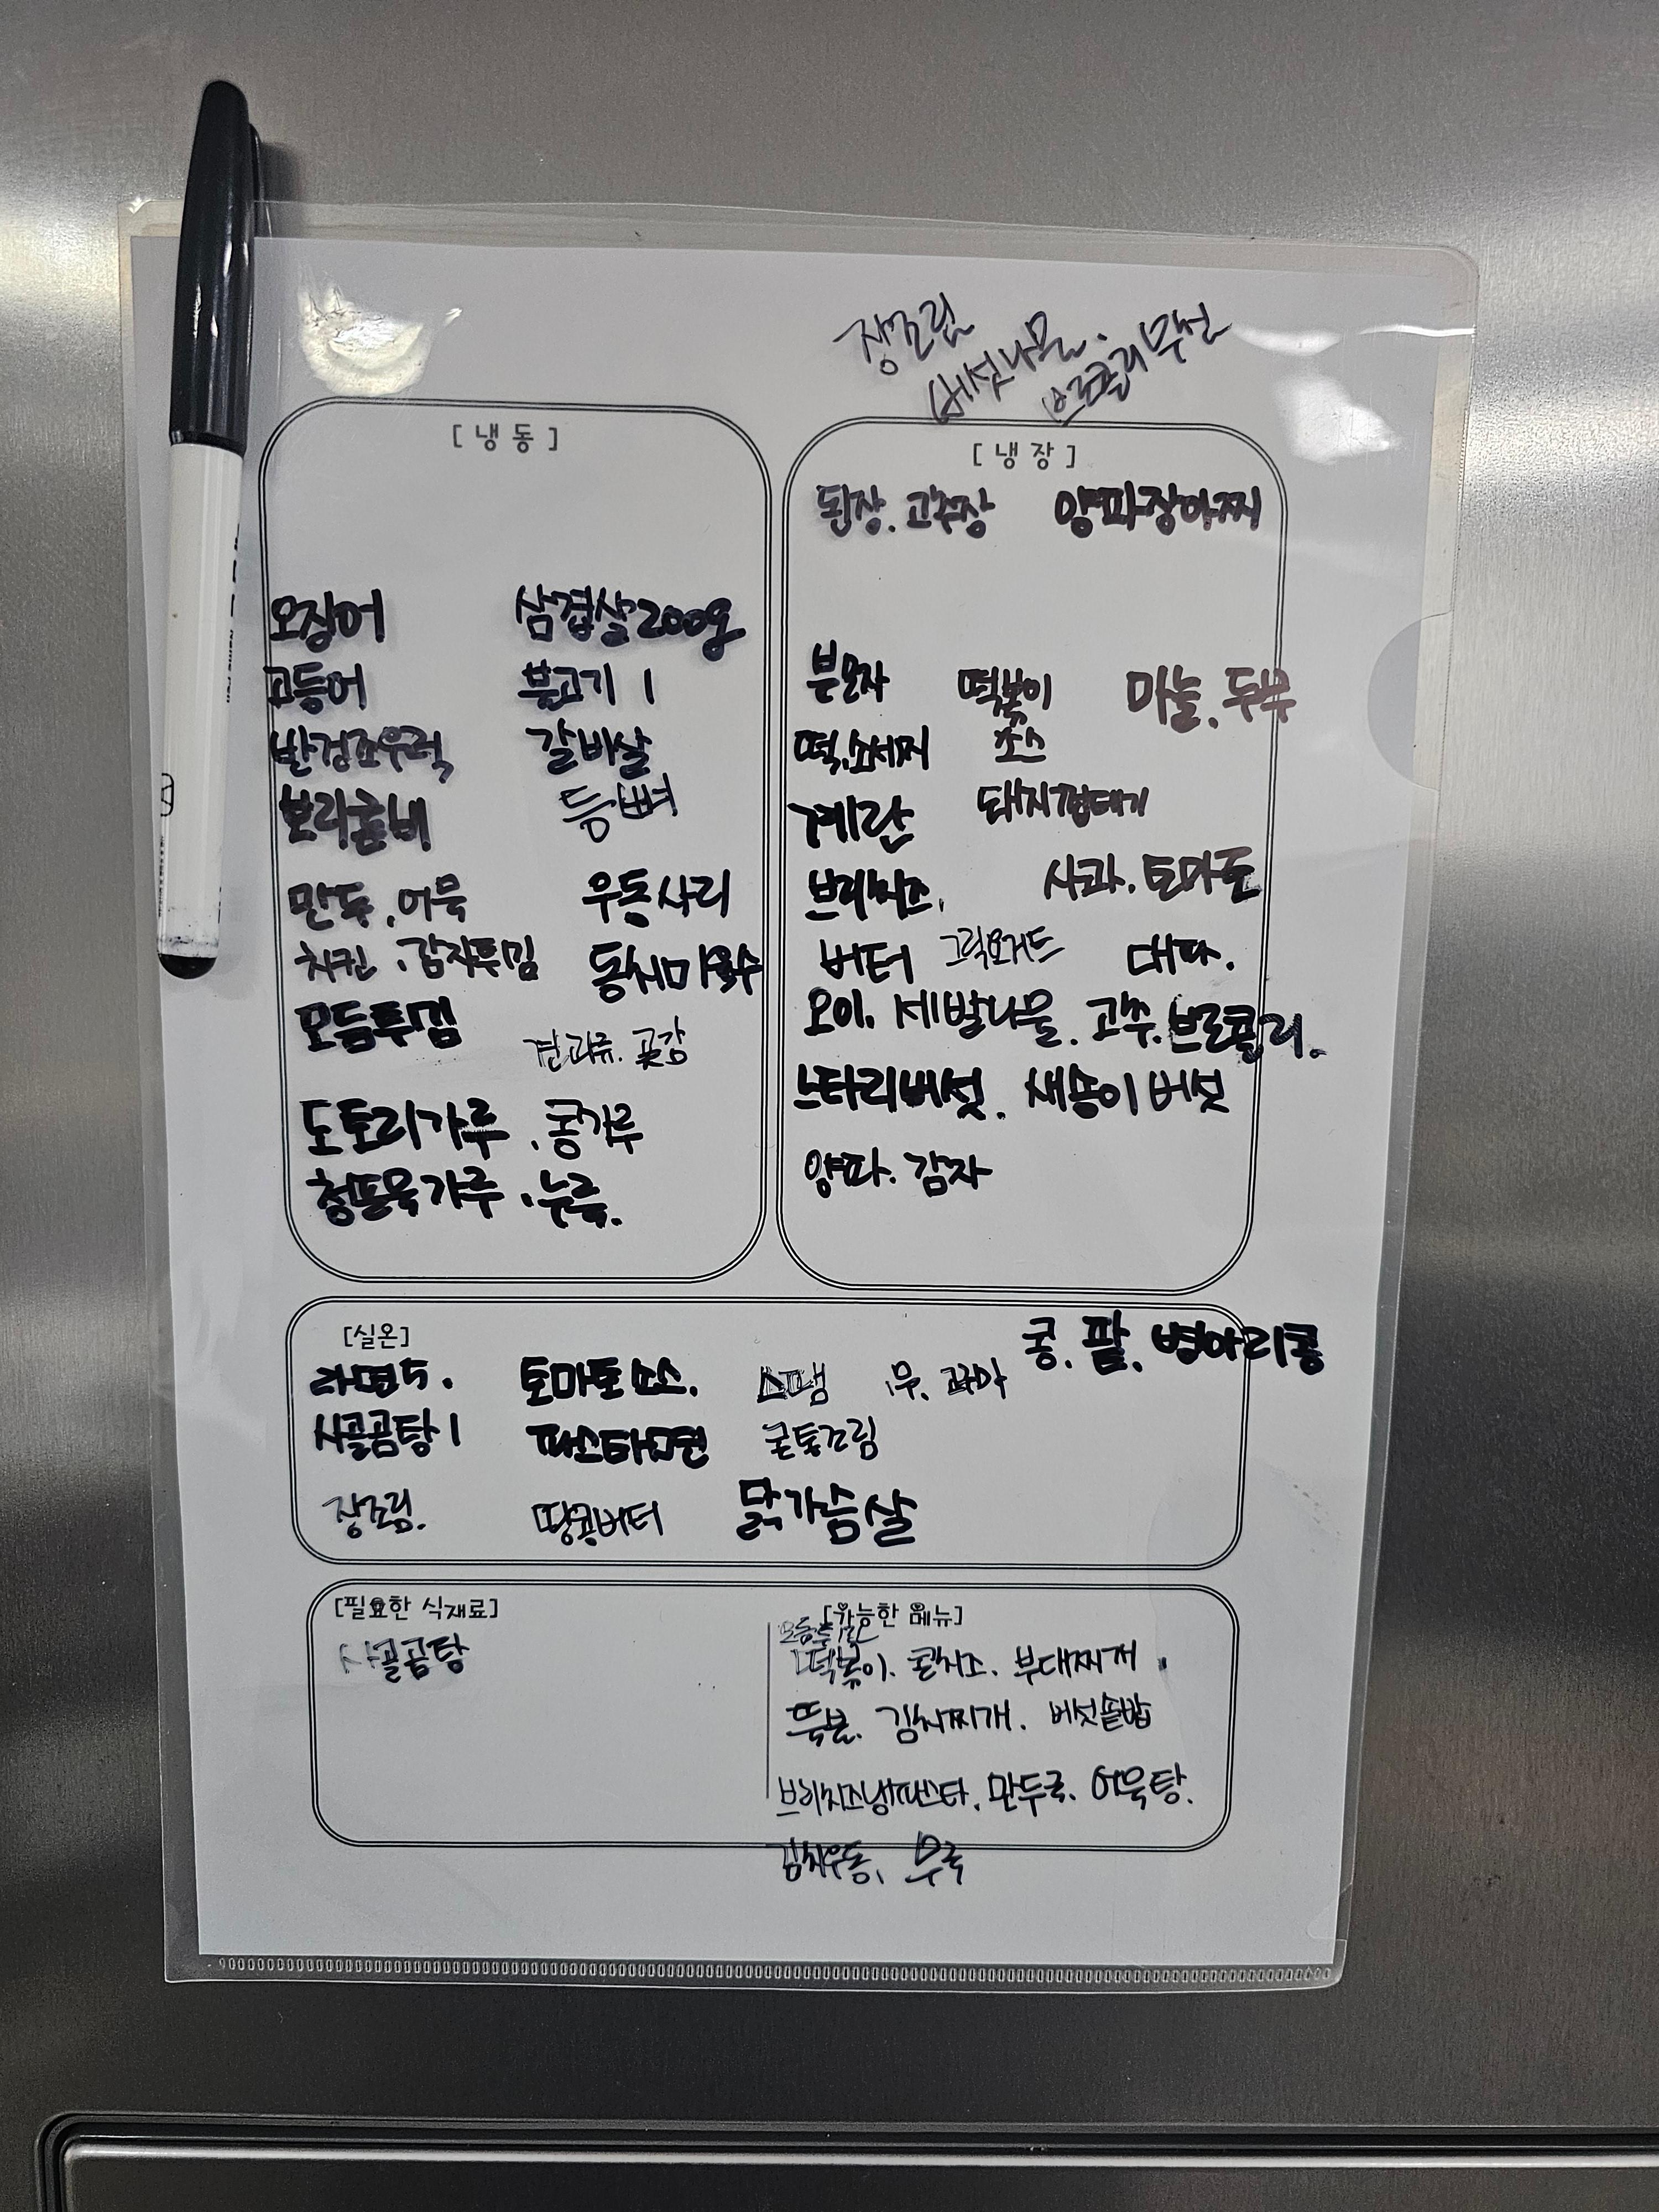 장조림
버섯나물.
브로콜리무침
[냉동]
오징어 삼겹살200g
고등어 불고기 1
반건조우럭 갈비살
보리굴비 등뼈
만두, 어묵 우동사리
치킨, 감자튀김 동치미육수
모듬튀김
견과류. 곶감
도토리가루, 콩가루
청포묵가루, 누룩.
[냉장]
된장. 고추장 양파장아찌
분모자 떡볶이 마늘. 두부
떡.소세지 소스
계란 돼지껍데기
브리치즈, 사과. 토마토
버터 그릭요거트 대파.
오이. 세발나물. 고추.브로콜리.
느타리버섯. 새송이버섯
양파. 감자
[실온]
콩. 팥. 병아리콩
라면5. 토마토소스. 스팸 무.
사골곰탕1
장조림. 땅콩버터 닭가슴살
[필요한 식재료]
사골곰탕
[가능한 메뉴]
떡볶이. 콘치즈. 부대찌개.
뚝불. 김치찌개. 버섯솥밥
브리치즈냉파스타. 만두국. 어묵탕.
김치우동, 무국